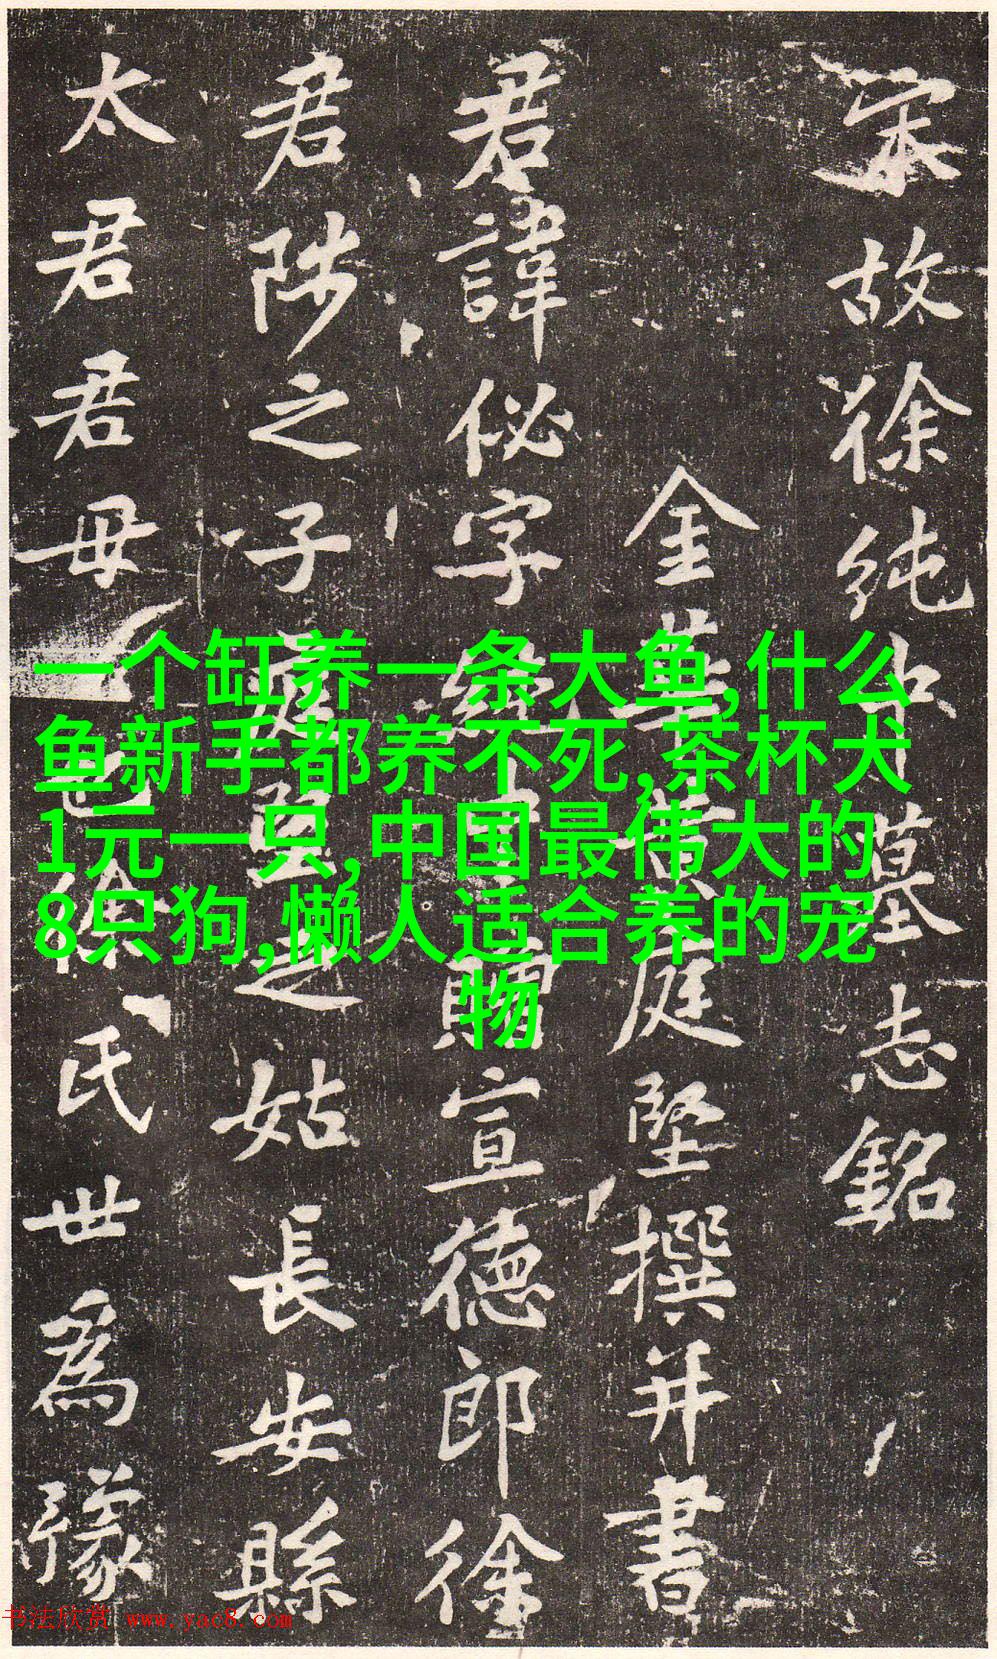 宋故徐純中墓志銘
金華黃庭堅撰并書
君諱佖字中贈宣德郎徐
君陟之子庭堅之姑長安縣
太君君母徐氏世為豫
一个缸养一条大鱼,什么
鱼新手都养不死,茶杯犬
1元一只,中国最伟大的
8只狗,懒人适合养的宠
物
书法欣赏 www.yac8.com